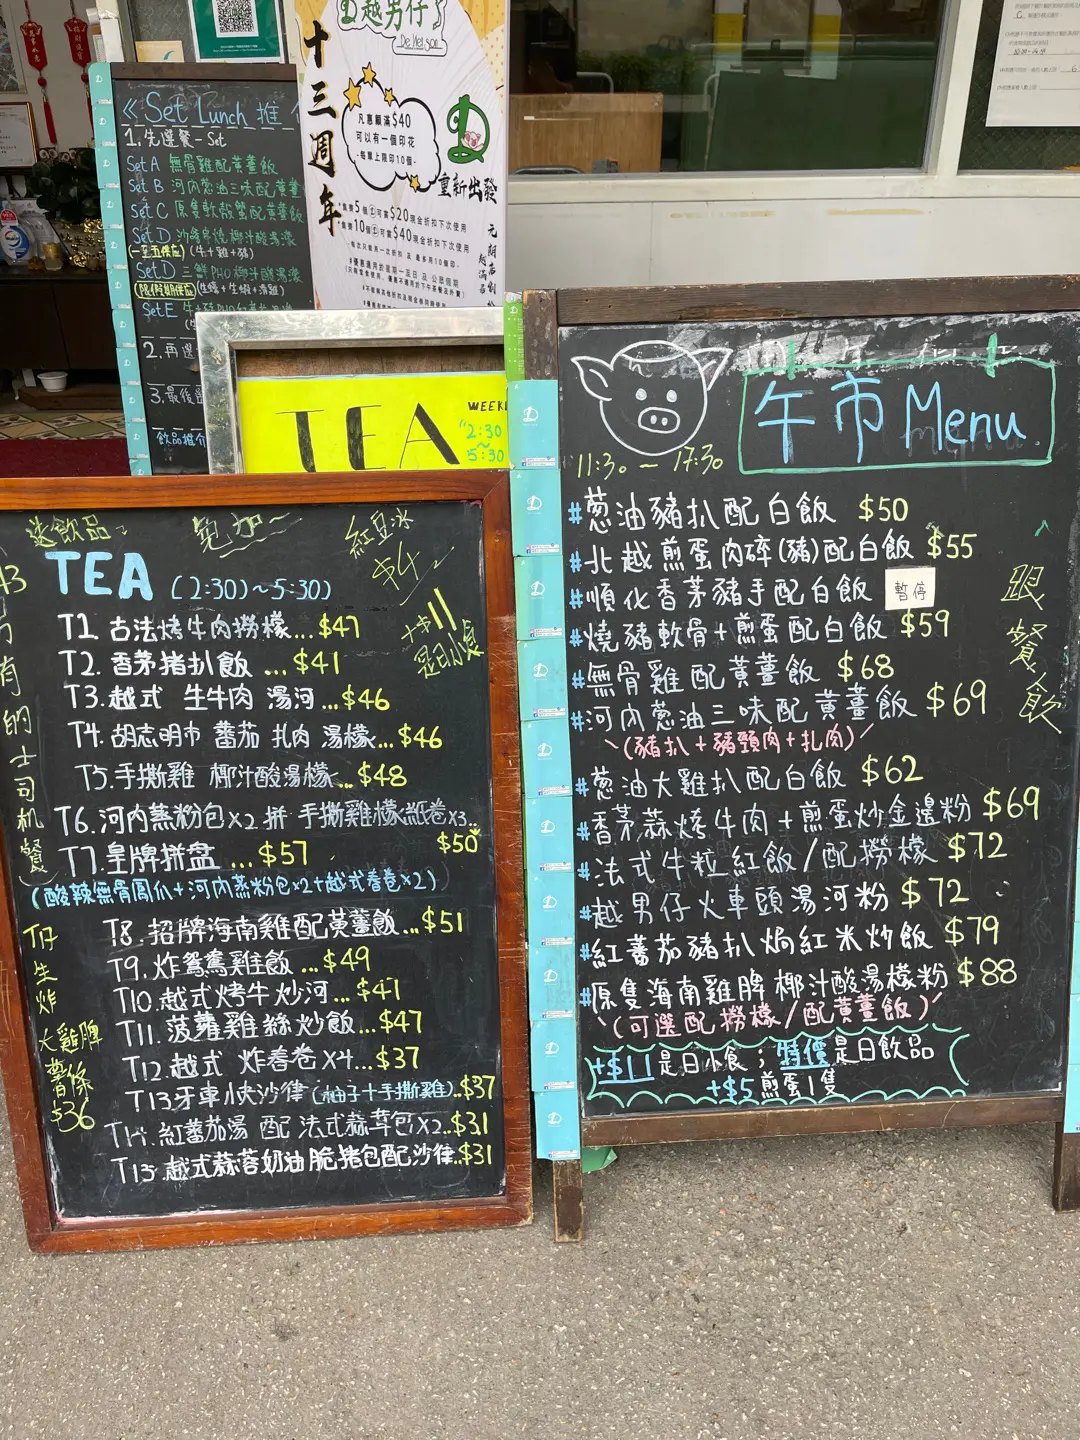 《Set Lunch 推
1. 先選餐 - Set
Set A 無骨雞配黃薑飯
Set B 河內蔥油三味配黃薑
Set C 原隻軟殼蟹配黃薑飯
Set D 沙嗲串燒椰汁酸湯濛
(一至五供應) (牛+雞+豬)
Set D 三鮮PHO椰汁酸湯濛
(限假期供應)
Set E
2. 再選
3. 最後
飲品推介
越男仔
De Viet Son
十三周年
凡惠顧滿$40
可以有一個印花
-每單上限印10個-
重新出發
集齊5個 可當$20現金折扣下次使用
集齊10個 可當$40現金折扣下次使用
TEA
WEEK
2:30
~
5:30
送飲品
免加
紅豆冰
$4
TEA (2:30)~5:30)
+$11
是日小食
T1. 古法烤牛肉撈檬...$47
T2. 香茅猪扒飯 ...$41
T3. 越式 生牛肉 湯河...$46
T4. 胡志明市 蕃茄 扎肉 湯檬...$46
T5. 手撕雞 椰汁酸湯檬...$48
T6. 河內蒸粉包x2 拼 手撕雞檬紙卷x3..
$50
T7. 皇牌拼盘 ...$57
(酸辣無骨鳳爪+河内蒸粉包x2+越式春卷x2)
T8. 招牌海南雞配黃薑飯...$51
T9. 炸鴛鴦雞飯 ...$49
T10. 越式烤牛炒河...$41
T11. 菠蘿雞絲炒飯...$47
T12. 越式 炸春卷 x4...$37
T13 牙車快沙律(柚子+手撕雞)..$37
T14. 紅蕃茄湯 配 法式蒜茸包x2..$31
T15. 越式蒜蓉奶油脆猪包配沙律..$31
的士司机餐
T仔
生炸
大雞脾
薯條
$36
午市 Menu
11:30 ~ 17:30
#蔥油豬扒配白飯 $50
#北越煎蛋肉碎(豬)配白飯 $55
#順化香茅豬手配白飯 暫停
#燒豬軟骨+煎蛋配白飯 $59
#無骨雞配黃薑飯 $68
#河內蔥油三味配黃薑飯 $69
(豬扒+豬頸肉+扎肉)
#蔥油大雞扒配白飯 $62
#香茅蒜烤牛肉+煎蛋炒金邊粉 $69
#法式牛粒紅飯/配撈檬 $72
#越男仔火車頭湯河粉 $72
#紅蕃茄豬扒焗紅米炒飯 $79
#原隻海南雞脾椰汁酸湯檬粉 $88
(可選配撈檬/配黃薑飯)
+$11是日小食；特價是日飲品
+$5煎蛋1隻
跟餐飲